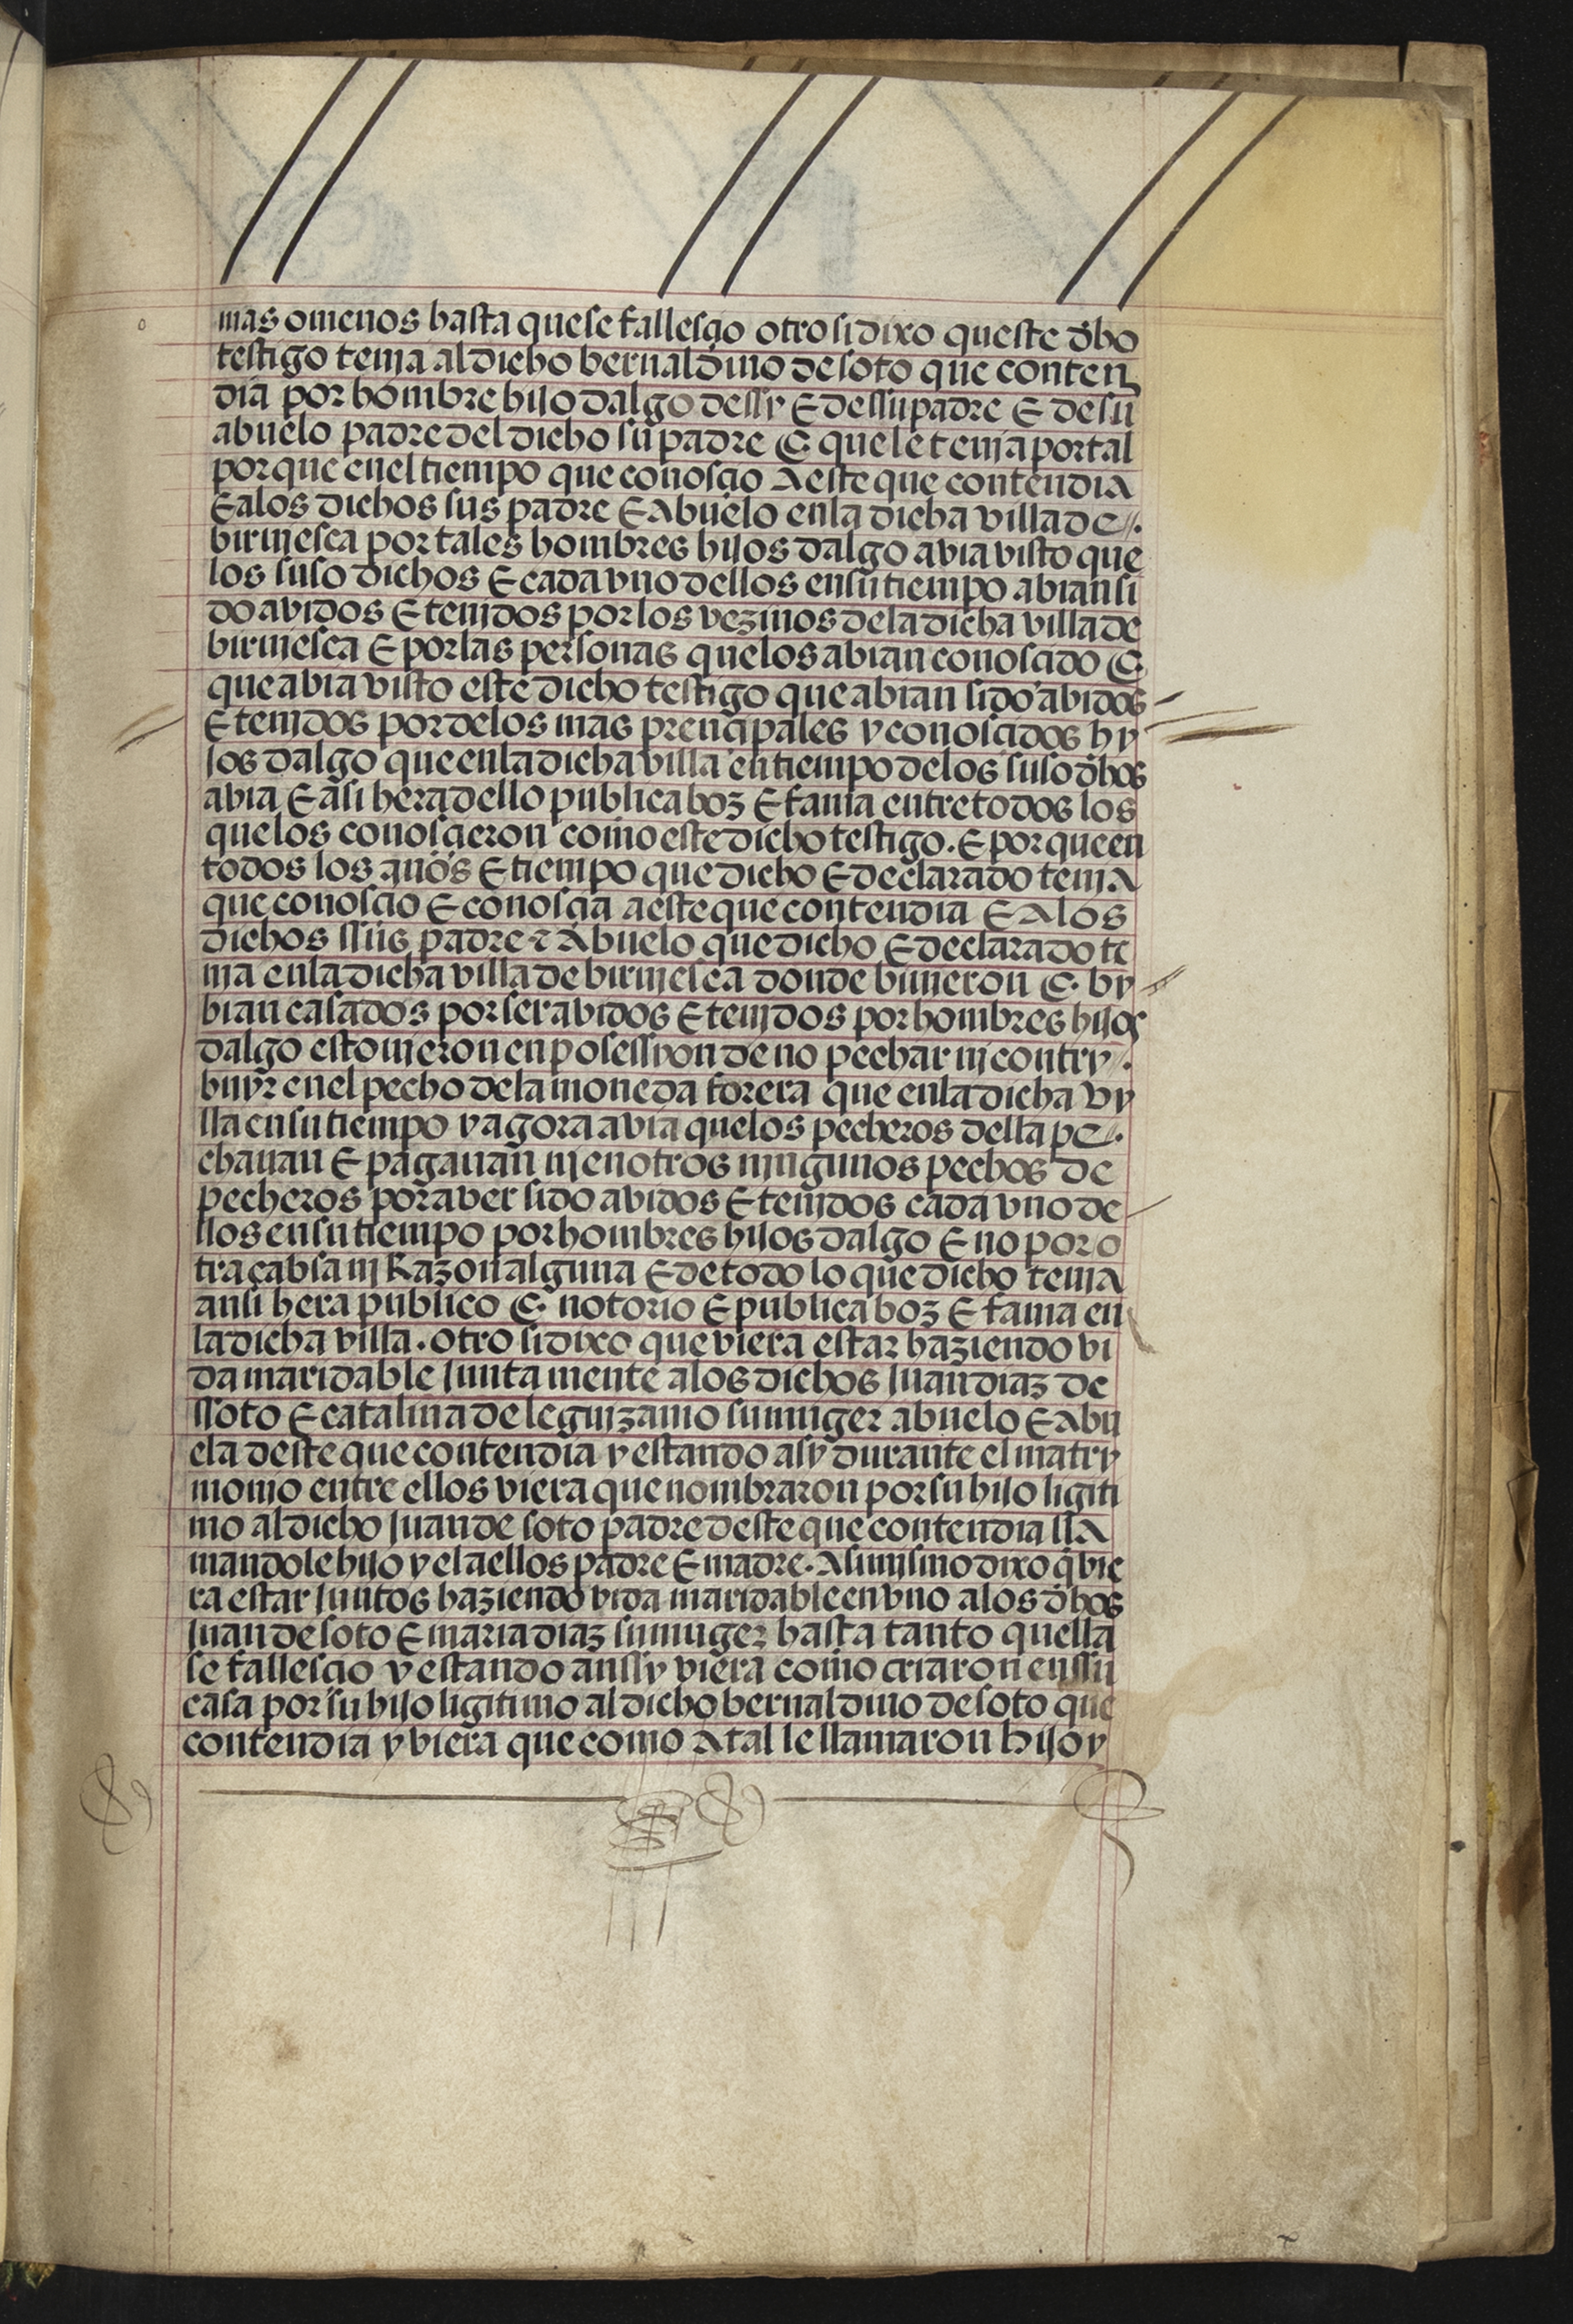 mas omenos hasta quese fallesçio otrosidixo queste dho
testigo tenja aldicho bernaldino desoto que conten
dia por hombre hijodalgo dessy E dessupadre E desu
abuelo padredeldicho su padre E quele tenja portal
porque eneltiempo que conosçio Aesteque contendia
Ealos dichos sus padre EAbuelo enla dicha villade
birujesca portales hombres hijos dalgo avia visto que
los susodichos Ecada vno dellos ensutiempo abian si
do avidos Etenjdos porlos vezinos dela dicha villade
birujesca E porlas personas quelos abian conosçido E
queabia visto este dicho testigo queabian sido abidos
Etenjdos pordelos mas prençipales yconosçidos hy
jos dalgo queenladicha villa entiempo delos susodhos
abia E asi hera dello publicaboz E fama entretodos los
quelos conosçieron como este dicho testigo. E porqueen
todos los años Etiempo que dicho Edeclarado tenjA
que conosçio Econosçia aesteque contendia E Alos
dichos ssus padre E Abuelo que dicho Edeclarado te
nja enladicha villa de birujesca donde biujeron E by
bian casados porser abidos Etenjdos por hombres hijos
dalgo estoujeron en posessyon de no pechar nj contry
buyr enel pecho dela moneda forera que enladicha vy
lla ensutiempo y agora avia quelos pecheros della pe
chauan E pagauan nj enotros njngunos pechos de
pecheros poraver sido abidos Etenjdos cada vno de
llos ensutiempo por hombres hijos dalgo E no por o
tra cabsa nj Razon alguna Edetodo lo que dicho tenja
ansi hera publico E notorio E publica boz E fama en
ladicha villa. otro sidixo que viera estar haziendo vi
da maridable Junta mente alos dichos Juan diaz de
ssoto E catalina deleguizamo sumuger abuelo E abu
ela deste que contendia y estando asy durante el matry
monio entre ellos viera que nombraron porsu hijo ligiti
mo aldicho Juande soto padre deste que contendia llA
mandole hijo y el aellos padre E madre. Asimjsmo dixo q̃ vie
ra estar Juntos haziendo vida maridable envno alos dhos
Juan desoto E maria diaz sumuger hasta tanto quella
se fallesçio y estando anssy viera como criaron enssu
casa por su hijo ligitimo aldicho bernaldino desoto que
contendia y viera que como Atal le llamaron hijo y